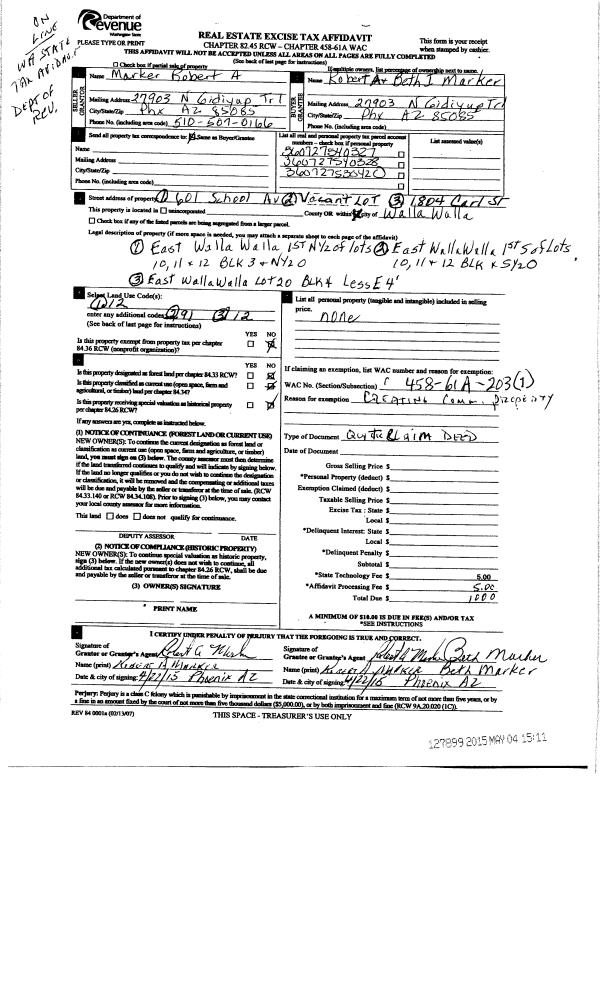 ON
LINE
WA STATE
TAX AVIDAVIT
DEPT OF
REV.
Department of
Revenue
Washington State
REAL ESTATE EXCISE TAX AFFIDAVIT
This form is your receipt
when stamped by cashier.
PLEASE TYPE OR PRINT
CHAPTER 82.45 RCW – CHAPTER 458-61A WAC
THIS AFFIDAVIT WILL NOT BE ACCEPTED UNLESS ALL AREAS ON ALL PAGES ARE FULLY COMPLETED
(See back of last page for instructions)
Check box if partial sale of property
If multiple owners, list percentage of ownership next to name.
SELLER GRANTOR
Name Marker Robert A
Mailing Address 27903 N Gidiyup Trl
City/State/Zip Phx AZ 85085
Phone No. (including area code) 510-507-0166
BUYER GRANTEE
Name Robert A + Beth I Marker
Mailing Address 27903 N Gidiyup Trl
City/State/Zip Phx AZ 85085
Phone No. (including area code)
Send all property tax correspondence to: Same as Buyer/Grantee
Name
Mailing Address
City/State/Zip
Phone No. (including area code)
List all real and personal property tax parcel account
numbers – check box if personal property
360727540327
360727540328
360727530420
List assessed value(s)
Street address of property: (1) 601 School Av (2) Vacant Lot (3) 1804 Carl St
This property is located in unincorporated County OR within city of Walla Walla
Check box if any of the listed parcels are being segregated from a larger parcel.
Legal description of property (if more space is needed, you may attach a separate sheet to each page of the affidavit)
(1) East Walla Walla 1ST N1/2 of lots (2) East Walla Walla 1st S of Lots
10, 11 + 12 BLK 3 + N1/20 10, 11 + 12 BLK x S1/20
(3) East Walla Walla Lot 20 BLK 4 Less E 4'
Select Land Use Code(s):
(1) 12
enter any additional codes: (2) 91 (3) 12
(See back of last page for instructions)
YES NO
Is this property exempt from property tax per chapter
84.36 RCW (nonprofit organization)?
YES NO
Is this property designated as forest land per chapter 84.33 RCW?
Is this property classified as current use (open space, farm and
agricultural, or timber) land per chapter 84.34?
Is this property receiving special valuation as historical property
per chapter 84.26 RCW?
If any answers are yes, complete as instructed below.
(1) NOTICE OF CONTINUANCE (FOREST LAND OR CURRENT USE)
NEW OWNER(S): To continue the current designation as forest land or
classification as current use (open space, farm and agriculture, or timber)
land, you must sign on (3) below. The county assessor must then determine
if the land transferred continues to qualify and will indicate by signing below.
If the land no longer qualifies or you do not wish to continue the designation
or classification, it will be removed and the compensating or additional taxes
will be due and payable by the seller or transferor at the time of sale. (RCW
84.33.140 or RCW 84.34.108). Prior to signing (3) below, you may contact
your local county assessor for more information.
This land does does not qualify for continuance.
DEPUTY ASSESSOR DATE
(2) NOTICE OF COMPLIANCE (HISTORIC PROPERTY)
NEW OWNER(S): To continue special valuation as historic property,
sign (3) below. If the new owner(s) does not wish to continue, all
additional tax calculated pursuant to chapter 84.26 RCW, shall be due
and payable by the seller or transferor at the time of sale.
(3) OWNER(S) SIGNATURE
PRINT NAME
List all personal property (tangible and intangible) included in selling
price.
none
If claiming an exemption, list WAC number and reason for exemption:
WAC No. (Section/Subsection) 458-61A-203(1)
Reason for exemption Creating Comm. property
Type of Document Quit Claim Deed
Date of Document
Gross Selling Price $
*Personal Property (deduct) $
Exemption Claimed (deduct) $
Taxable Selling Price $
Excise Tax : State $
Local $
*Delinquent Interest: State $
Local $
*Delinquent Penalty $
Subtotal $
*State Technology Fee $ 5.00
*Affidavit Processing Fee $ 5.00
Total Due $ 10.00
A MINIMUM OF $10.00 IS DUE IN FEE(S) AND/OR TAX
*SEE INSTRUCTIONS
I CERTIFY UNDER PENALTY OF PERJURY THAT THE FOREGOING IS TRUE AND CORRECT.
Signature of
Grantor or Grantor's Agent Robert A Marker
Name (print) Robert A Marker
Date & city of signing: 4/22/15 Phoenix AZ
Signature of
Grantee or Grantee's Agent Robert A Marker Beth Marker
Name (print) Robert A Marker Beth Marker
Date & city of signing: 4/22/15 Phoenix AZ
Perjury: Perjury is a class C felony which is punishable by imprisonment in the state correctional institution for a maximum term of not more than five years, or by
a fine in an amount fixed by the court of not more than five thousand dollars ($5,000.00), or by both imprisonment and fine (RCW 9A.20.020 (1C)).
REV 84 0001a (02/13/07)
THIS SPACE - TREASURER'S USE ONLY
127899 2015 MAY 04 15:11